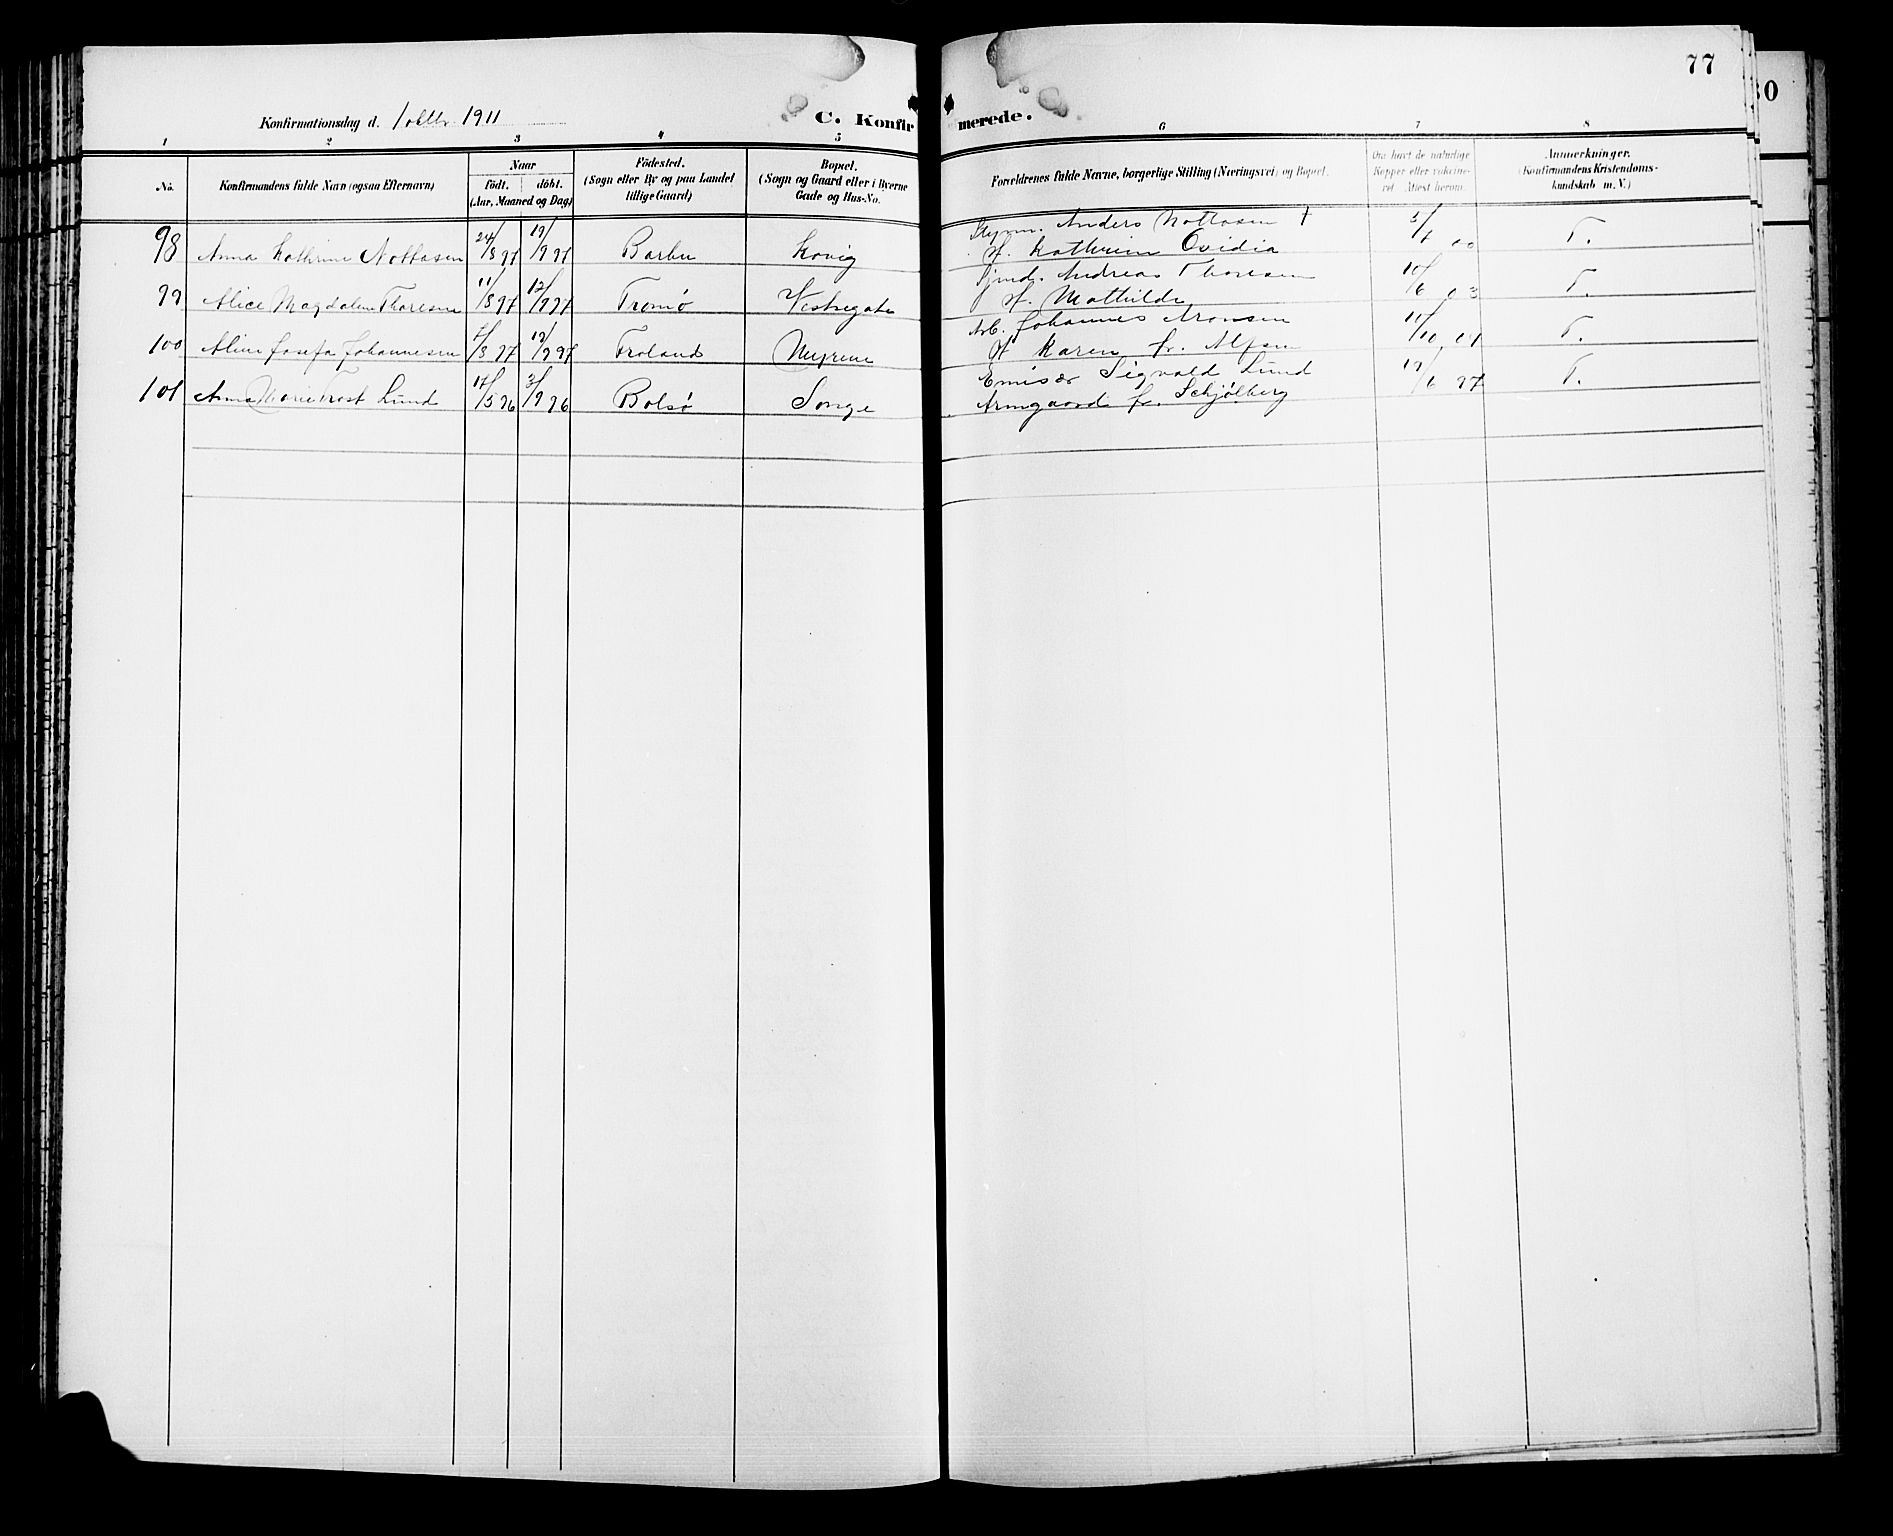 77
30
Konfirmationsdag d. 1 oktbr 1911
C. Konfir merede.
1 2 3 4 5 6 7 8
No.
Konfirmandens fulde Navn (ogsaa Efternavn)
Naar
födt. döbt.
(Aar, Maaned og Dag)
Födested.
(Sogn eller By og paa Landet
tillige Gaard)
Bopæl.
(Sogn og Gaard eller i Byerne
Gade og Hus-No.
Foræeldrenes fulde Navne, borgerlige Stilling (Næringsvei) og Bopæl.
Om havt de naturlige
Kopper eller vakcine-
ret Attest herom.
Anmerkninger.
(Konfirmandens Kristendoms-
kundskab m. V.)
98 Anna Kathrine Nottosen 24/8 97 19/9 97 Barbu Kovig
Anders Nottosen †
H. Kathrine Ovidia
5/4 00 T.
99 Alice Magdalene Thoresen 11/8 97 12/9 97 Tromø Vestregate
Sjmd. Andreas Thoresen
H. Mathilde
10/6 03 T.
100 Aline Josefa Johannesen 4/8 97 19/9 97 Froland Myrene
Arb. Johannes Aronsen
H Karen f. Alfsen
11/10 01 T.
101 Anna Marie Trost Lund 14/5 96 3/9 96 Bolsø Songe
Emisær Sigvald Lund
Armgaard f. Schjølberg
19/6 97 T.